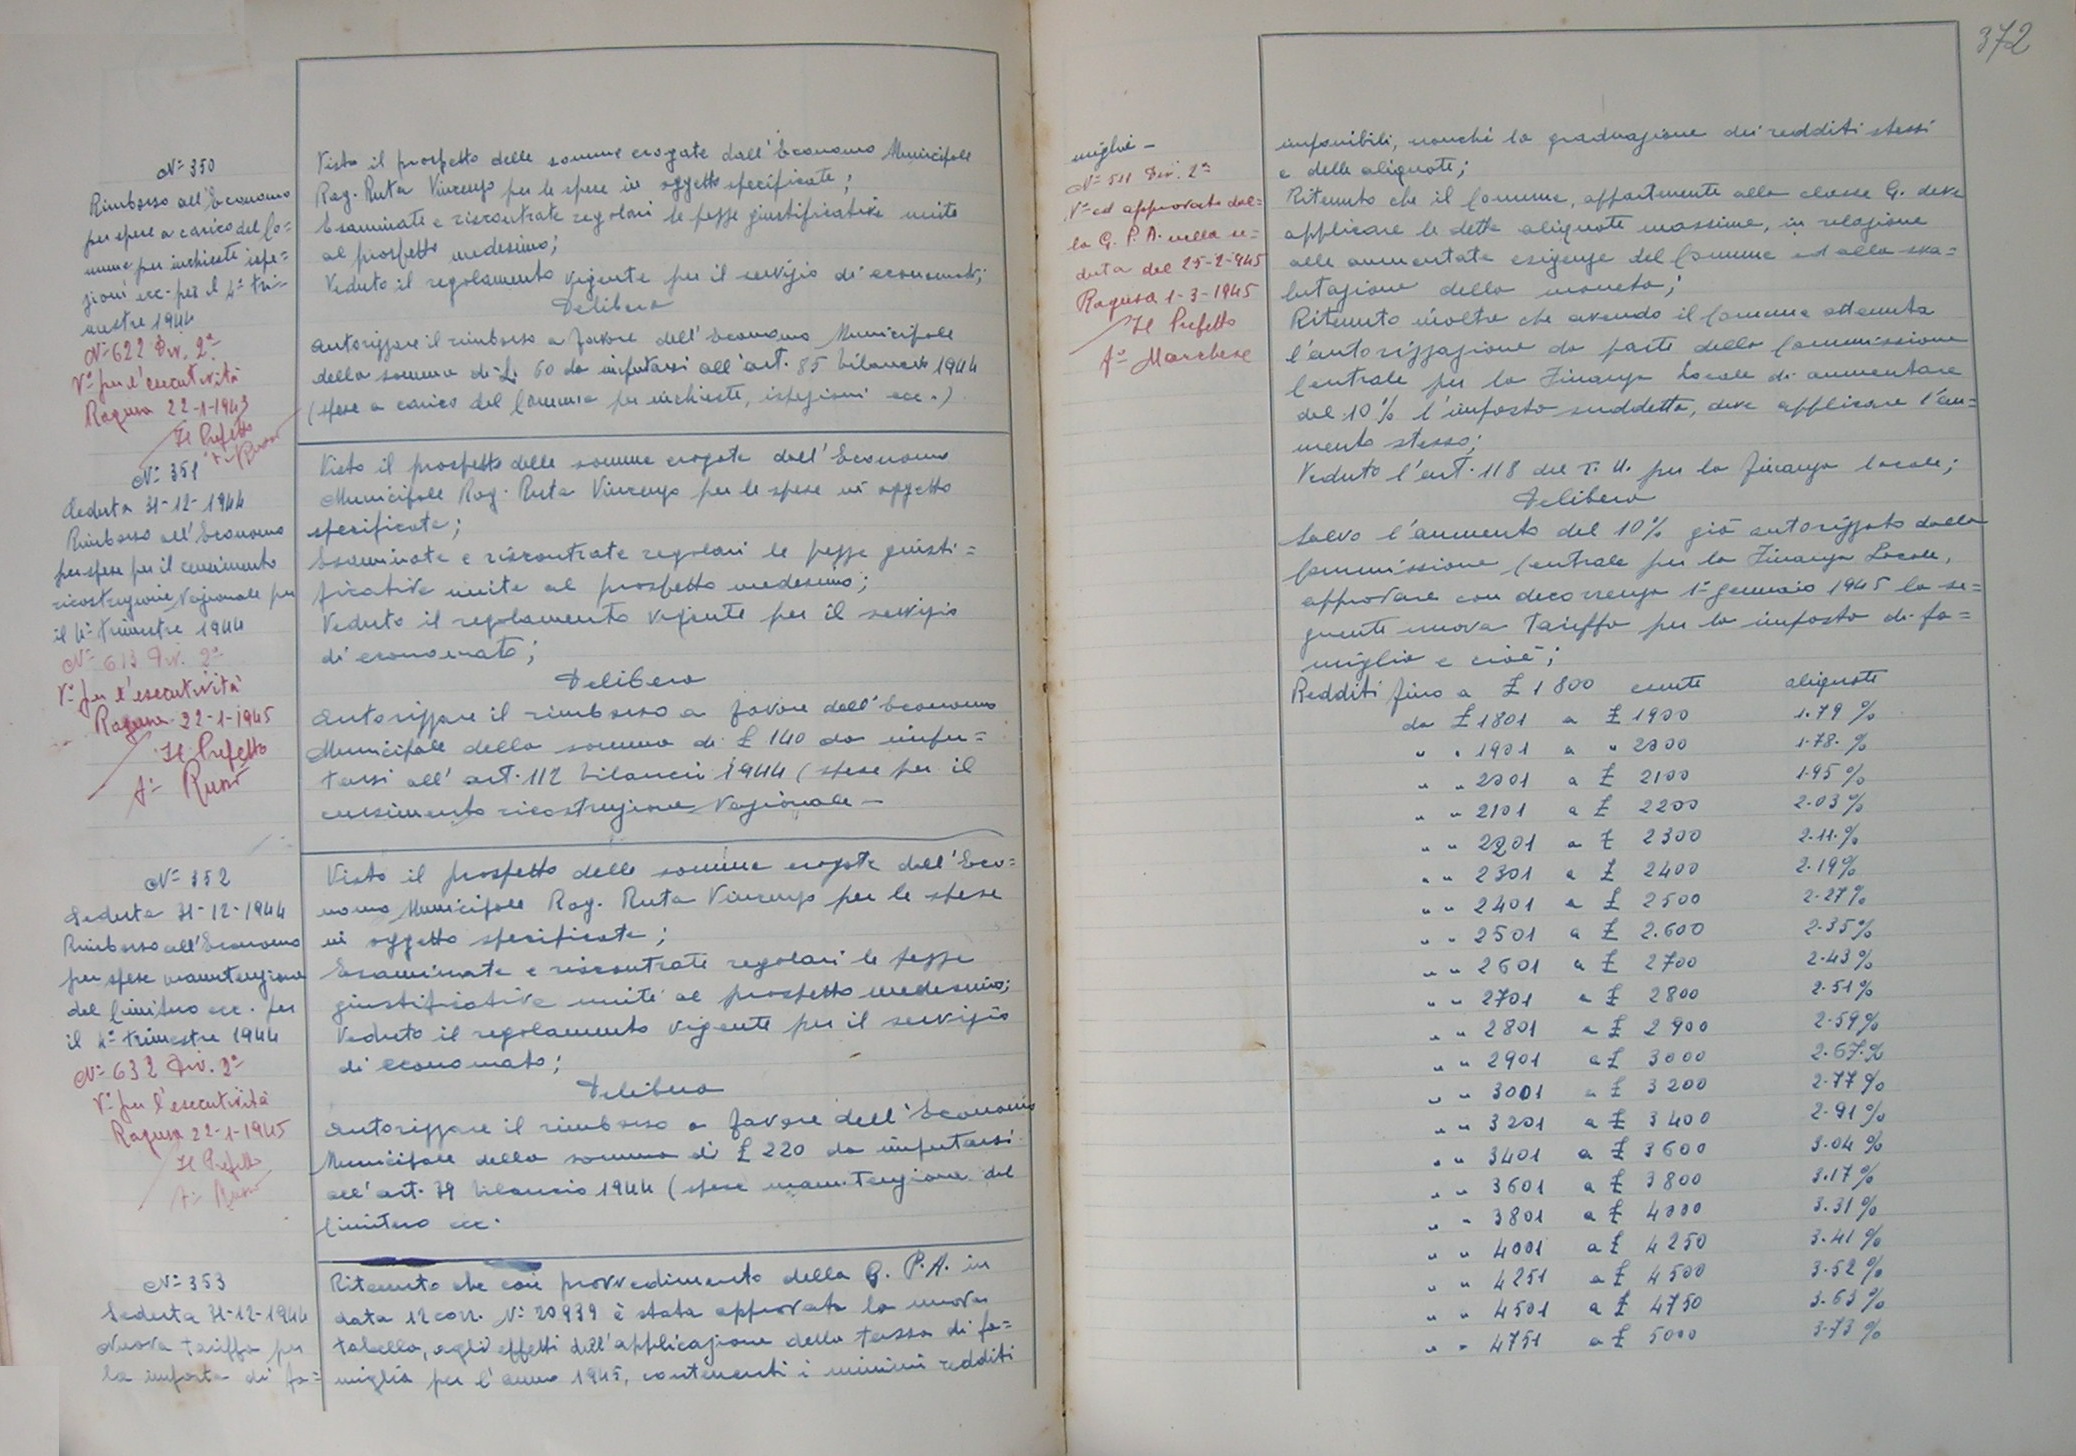 N° 350
Rimborso all'Economo
per spese a carico del Co=
mune per inchieste ispe=
zioni ecc. per il 4° tri-
mestre 1944
N° 622 Div. 2ª
V° per l'esecutività
Ragusa 22-1-1943
Il Prefetto
Visto il prospetto delle somme erogate dall'Economo Municipale
Rag. Ruta Vincenzo per le spese in oggetto specificate;
Esaminate e riscontrate regolari le pezze giustificative unite
al prospetto medesimo;
Veduto il regolamento vigente per il servizio di economato;
Delibera
autorizzare il rimborso a favore dell'Economo Municipale
della somma di £. 60 da imputarsi all'art. 85 bilancio 1944
(spese a carico del Comune per inchieste, ispezioni ecc.)
N° 351
Seduta 31-12-1944
Rimborso all'Economo
per spese per il censimento
ricostruzione Nazionale per
il 4° trimestre 1944
N° 613 Div. 2ª
V° per l'esecutività
Ragusa 22-1-1945
Il Prefetto
f° Russo
Visto il prospetto delle somme erogate dall'Economo
Municipale Rag. Ruta Vincenzo per le spese in oggetto
specificate;
Esaminate e riscontrate regolari le pezze giusti=
ficative unite al prospetto medesimo;
Veduto il regolamento vigente per il servizio
di economato;
Delibera
autorizzare il rimborso a favore dell'Economo
Municipale della somma di £ 140 da impu=
tarsi all'art. 112 bilancio 1944 (spese per il
censimento ricostruzione Nazionale -
N° 352
Seduta 31-12-1944
Rimborso all'Economo
per spese manutenzione
del Cimitero ecc. per
il 4° trimestre 1944
N° 632 Div. 2ª
V° per l'esecutività
Ragusa 22-1-1945
Il Prefetto
f° Russo
Visto il prospetto delle somme erogate dall'Eco=
nomo Municipale Rag. Ruta Vincenzo per le spese
in oggetto specificate;
Esaminate e riscontrate regolari le pezze
giustificative unite al prospetto medesimo;
Veduto il regolamento vigente per il servizio
di economato;
Delibera
autorizzare il rimborso a favore dell'Economo
Municipale della somma di £ 220 da imputarsi
all'art. 79 bilancio 1944 (spese manutenzione del
Cimitero ecc.
N° 353
Seduta 31-12-1944
Nuova tariffa per
la imposta di fa=
Ritenuto che con provvedimento della G. P. A. in
data 12 corr. N° 20939 è stata approvata la nuova
tabella, agli effetti dell'applicazione della tassa di fa=
miglia per l'anno 1945, contenenti i minimi redditi
372
miglia -
N° 511 Div. 2ª
V° ed approvato dal=
la G. P. A. nella se=
duta del 25-2-945
Ragusa 1-3-1945
Il Prefetto
f° Marchese
imponibili, nonché la graduazione dei redditi stessi
e delle aliquote;
Ritenuto che il Comune, appartenente alla classe G. deve
applicare le dette aliquote massime, in relazione
alle aumentate esigenze del Comune ed alla sva=
lutazione della moneta;
Ritenuto inoltre che avendo il Comune ottenuta
l'autorizzazione da parte della Commissione
Centrale per la Finanza Locale di aumentare
del 10% l'imposta suddetta, deve applicare l'au=
mento stesso;
Veduto l'art. 118 del T. U. per la finanza locale;
Delibera
Salvo l'aumento del 10% già autorizzato dalla
Commissione Centrale per la Finanza Locale,
approvare con decorrenza 1° gennaio 1945 la se=
guente nuova tariffa per la imposta di fa=
miglia e cioè;
Redditi fino a £ 1800 esente aliquote
da £ 1801 a £ 1900 1.79 %
" " 1901 a " 2000 1.78. %
" " 2001 a £ 2100 1.95 %
" " 2101 a £ 2200 2.03 %
" " 2201 a £ 2300 2.11. %
" " 2301 a £ 2400 2.19 %
" " 2401 a £ 2500 2.27 %
" " 2501 a £ 2.600 2.35 %
" " 2601 a £ 2700 2.43 %
" " 2701 a £ 2800 2.51 %
" " 2801 a £ 2900 2.59 %
" " 2901 a £ 3000 2.67. %
" " 3001 a £ 3200 2.77 %
" " 3201 a £ 3400 2.91 %
" " 3401 a £ 3600 3.04 %
" " 3601 a £ 3800 3.17 %
" " 3801 a £ 4000 3.31 %
" " 4001 a £ 4250 3.41 %
" " 4251 a £ 4500 3.52 %
" " 4501 a £ 4750 3.63 %
" " 4751 a £ 5000 3.73 %